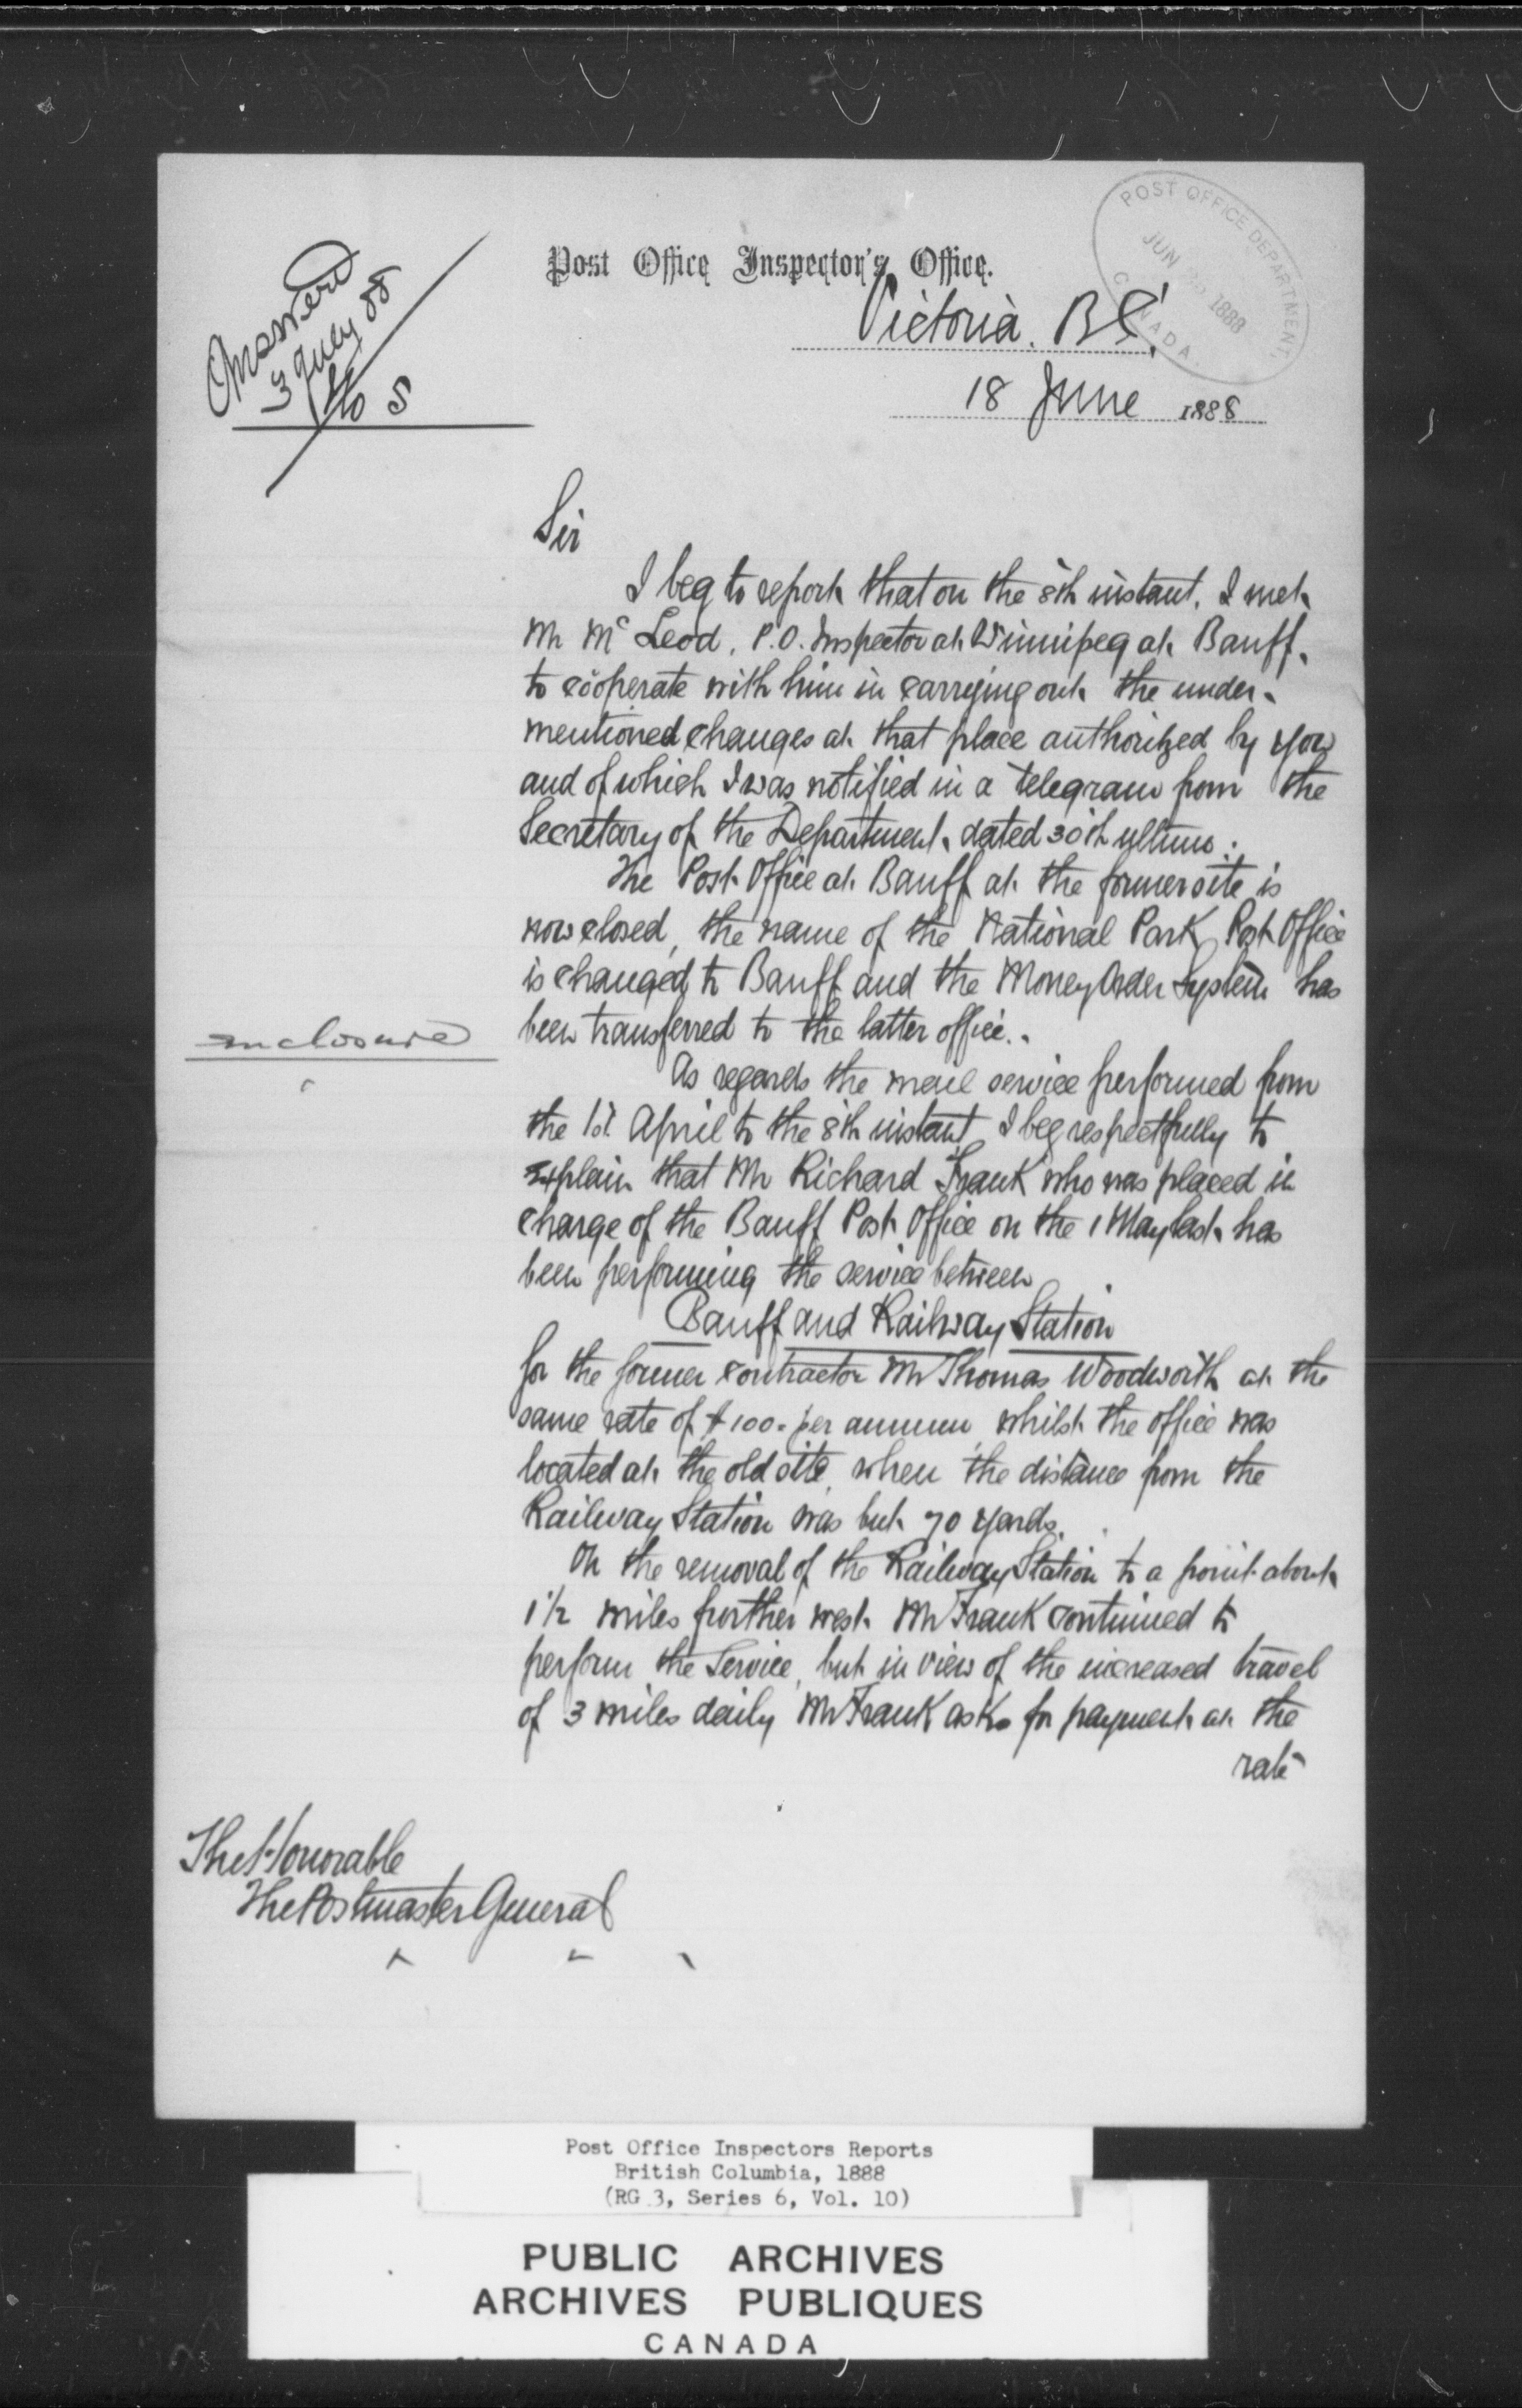 Post Office Inspector's Office.
POST OFFICE DEPARTMENT,
JUN 1888
CANADA.
Victoria. BC.
18 June 1888
Answered
3 July 88
Sir
I beg to report that on the 8th instant. I met
Mr McLeod, P.O. Inspector at Winnipeg at Banff.
to coöperate with him in carrying out the under-
mentioned changes at that place authorized by you
and of which I was notified in a telegram from the
Secretary of the Department dated 30th ultimo.
The Post Office at Banff at the former site is
now closed, the name of the National Park Post Office
is changed to Banff and the Money Order System has
been transferred to the latter office.
enclosure
As regards the mail service performed from
the 1st April to the 8th instant I beg respectfully to
explain that Mr Richard Frank who was placed in
charge of the Banff Post Office on the 1 May last has
been performing the service between
Banff and Railway Station
for the former contractor Mr Thomas Woodworth at the
same rate of $100. per annum whilst the office was
located at the old site, when the distance from the
Railway Station was but 70 yards.
On the removal of the Railway Station to a point about
1 1/2 miles further west Mr Frank continued to
perform the Service, but in view of the increased travel
of 3 miles daily Mr Frank asks for payment at the
rate
The Honorable
The Postmaster General
Post Office Inspectors Reports
British Columbia, 1888
(RG 3, Series 6, Vol. 10)
PUBLIC ARCHIVES
ARCHIVES PUBLIQUES
CANADA